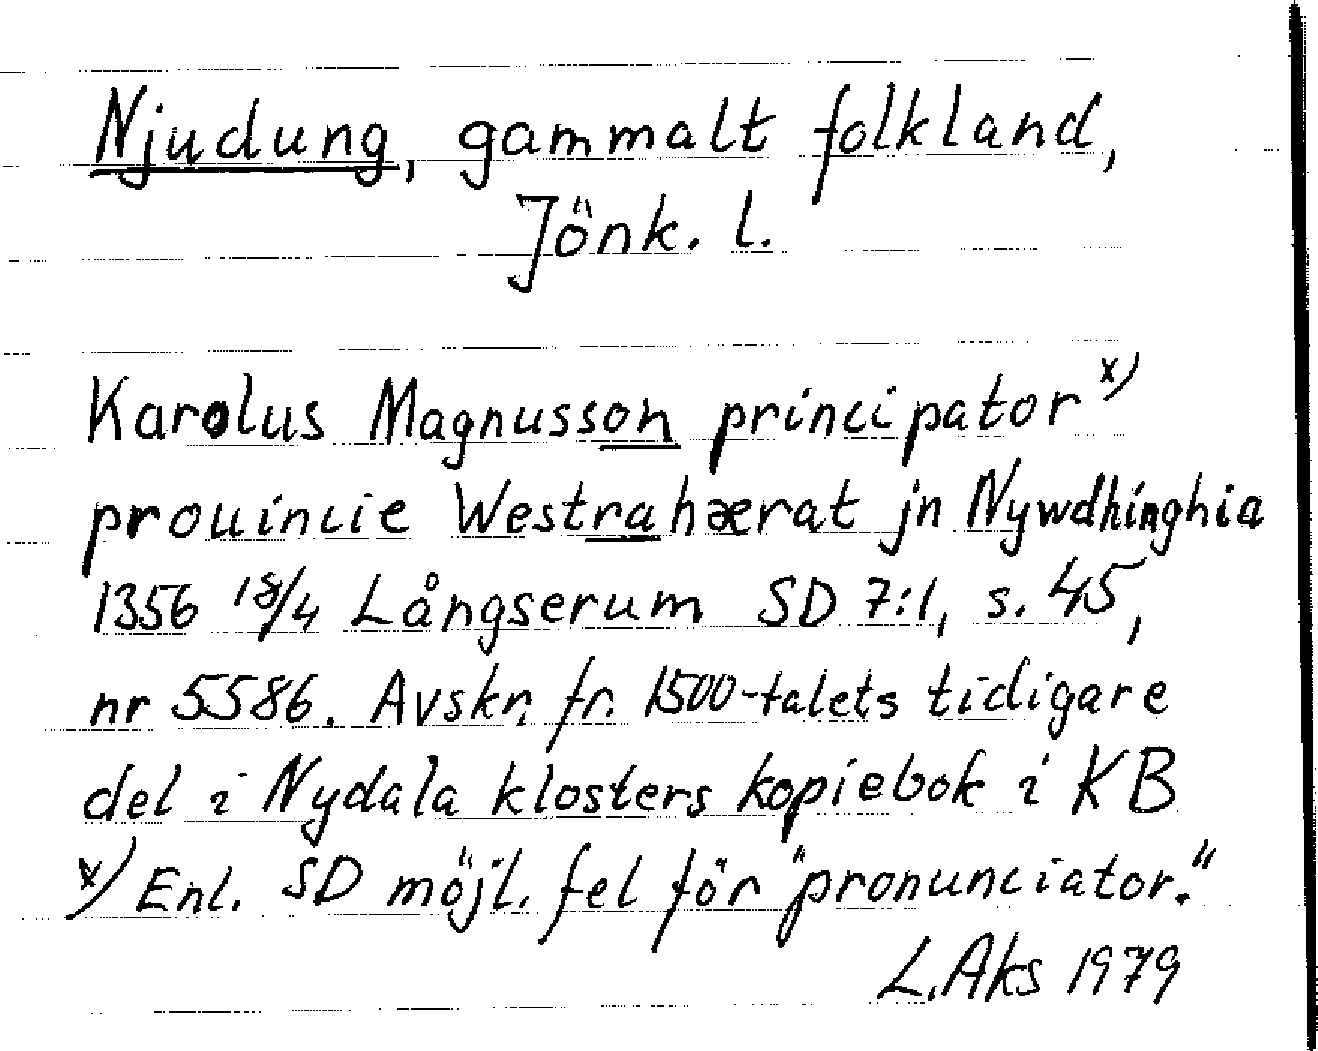 Njudung, gammalt folkland,
Jönk. l.
Karolus Magnusson principator x)
prouincie Westrahærat jn Nywdhinghia
1356 18/4 Långserum SD 7:1, s. 45,
nr 5586. Avskr. fr. 1500-talets tidigare
del i Nydala klosters kopiebok i KB
x) Enl. SD möjl. fel för "pronunciator."
L. Aks 1979